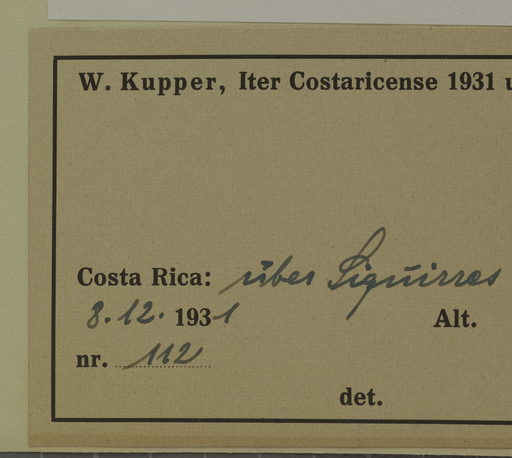 W. Kupper, Iter Costaricense 1931 u
Costa Rica: über Siquirres
8.12. 1931 Alt.
nr. 112
det.